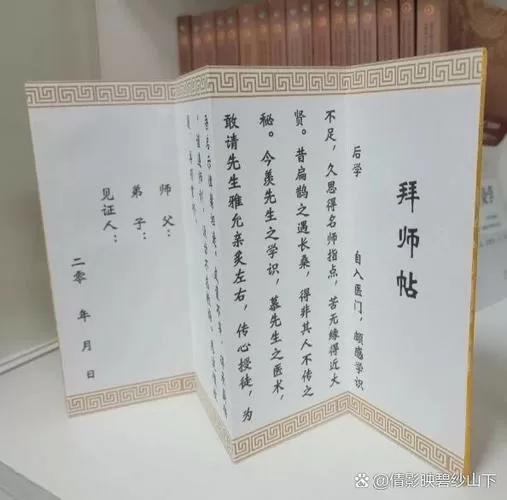 拜师帖
后学 自入医门，颇感学识
不足，久思得名师指点，苦无缘得近大
贤。昔扁鹊之遇长桑，得非其人不传之
秘。今羡先生之学识，慕先生之医术，
敢请先生雅允亲炙左右，传心授徒，为
师父：
弟子：
见证人：
二零 年 月 日
@倩影映碧纱山下